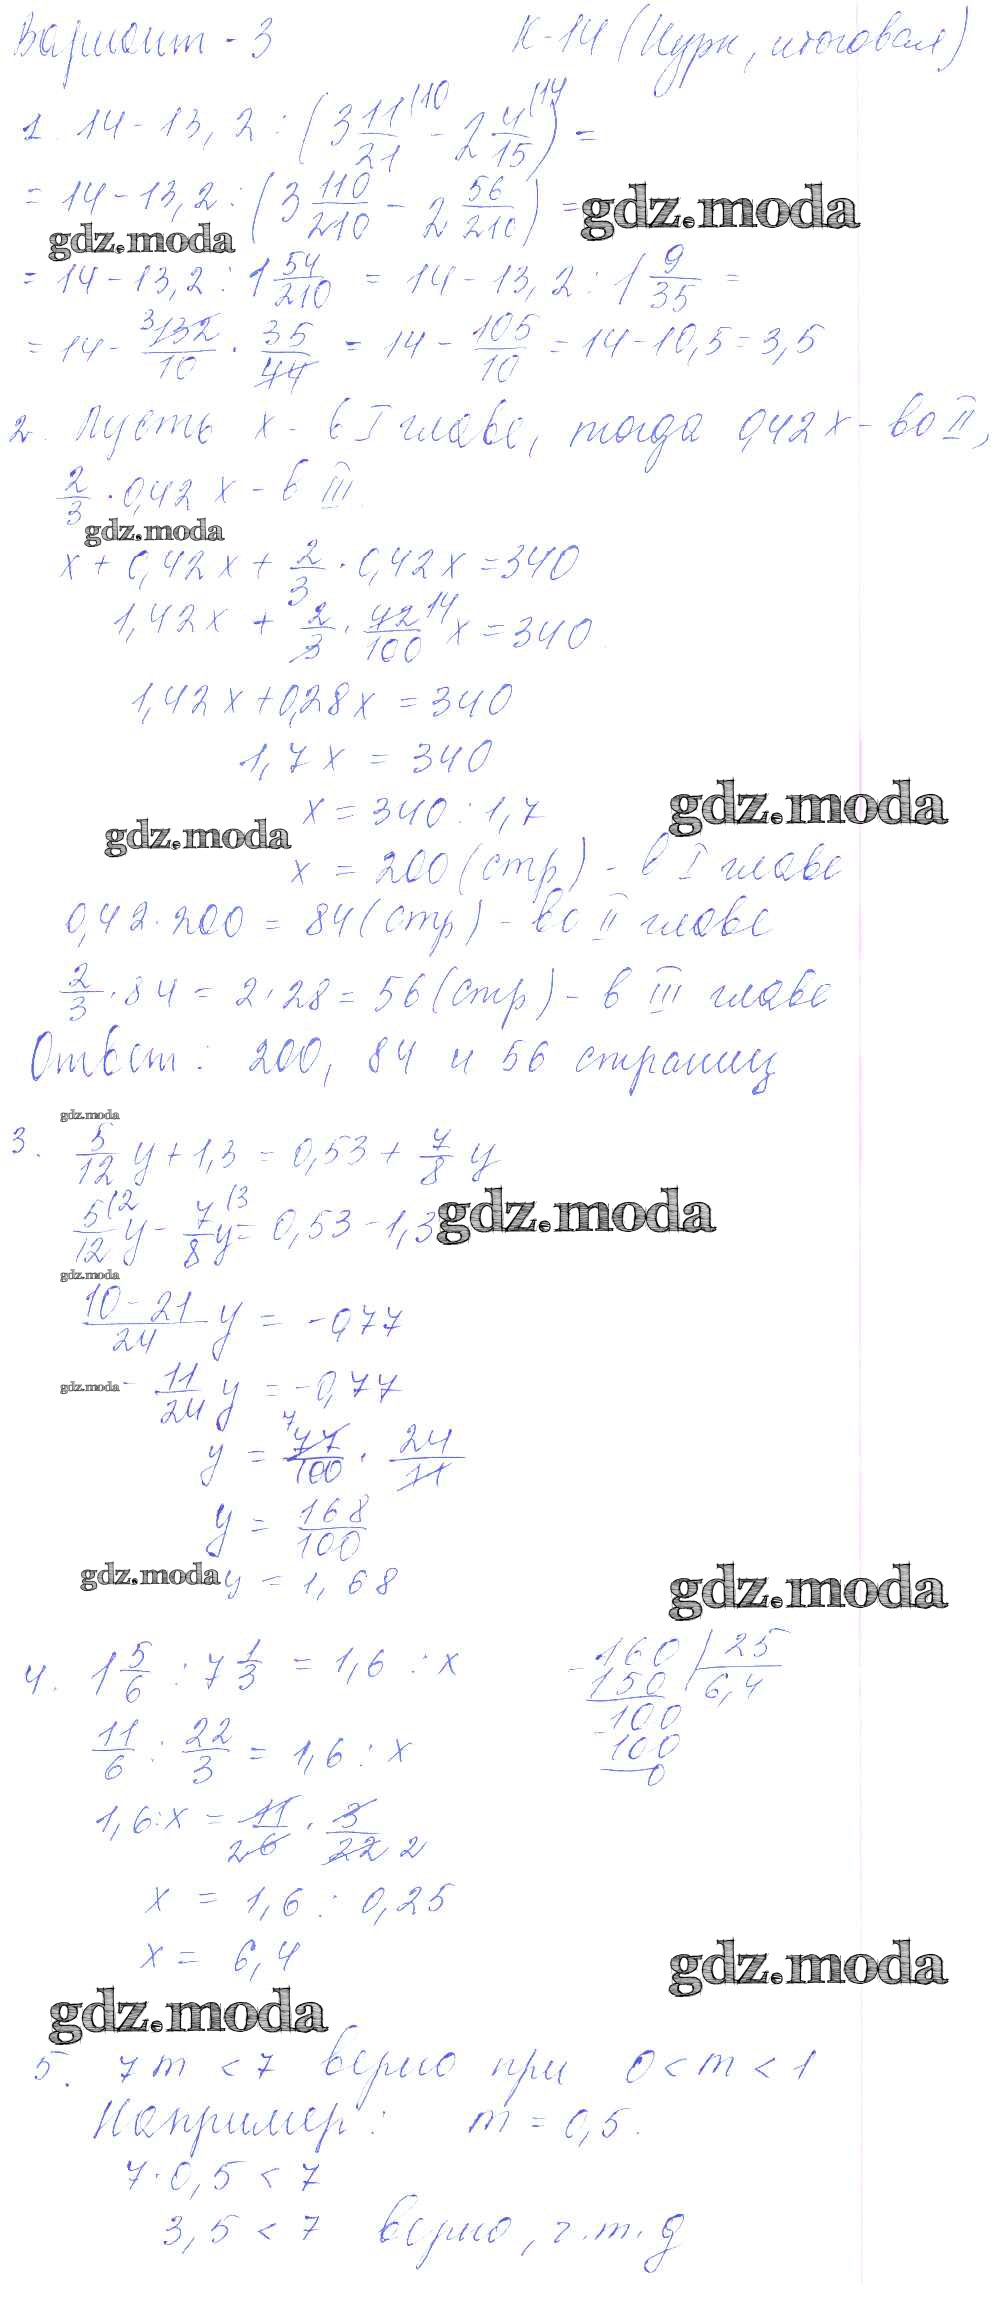 Вариант - 3 К-14 (Нурк, итоговая)
1. 14 - 13,2 : (3 11/21 (10 - 2 4/15 (14) =
= 14 - 13,2 : (3 110/210 - 2 56/210) =
gdz.moda
gdz.moda
= 14 - 13,2 : 1 54/210 = 14 - 13,2 : 1 9/35 =
= 14 - 3 132/10 · 35/44 = 14 - 105/10 = 14 - 10,5 = 3,5
2. Пусть x - в I главе, тогда 0,42x - во II,
2/3 · 0,42 x - в III.
gdz.moda
x + 0,42x + 2/3 · 0,42x = 340
1,42x + 2/3 · 42/100 14 x = 340.
1,42x + 0,28x = 340
1,7x = 340
x = 340 : 1,7
gdz.moda
gdz.moda
x = 200 (стр) - в I главе
0,42 · 200 = 84 (стр) - во II главе
2/3 · 84 = 2 · 28 = 56 (стр) - в III главе
Ответ: 200, 84 и 56 страниц
gdz.moda
3. 5/12 y + 1,3 = 0,53 + 7/8 y
5/12 (2 y - 7/8 (3 y = 0,53 - 1,3
gdz.moda
gdz.moda
10 - 21/24 y = -0,77
gdz.moda
- 11/24 y = -0,77
y = 7 77/100 · 24/11
y = 168/100
gdz.moda
y = 1,68
gdz.moda
4. 1 5/6 : 7 1/3 = 1,6 : x
11/6 : 22/3 = 1,6 : x
1,6 : x = 11/2 6 · 3/22 2
x = 1,6 : 0,25
x = 6,4
-160 | 25
150 6,4
-100
100
0
gdz.moda
gdz.moda
5. 7m < 7 верно при 0 < m < 1
Например: m = 0,5.
7 · 0,5 < 7
3,5 < 7 верно, ч.т.д